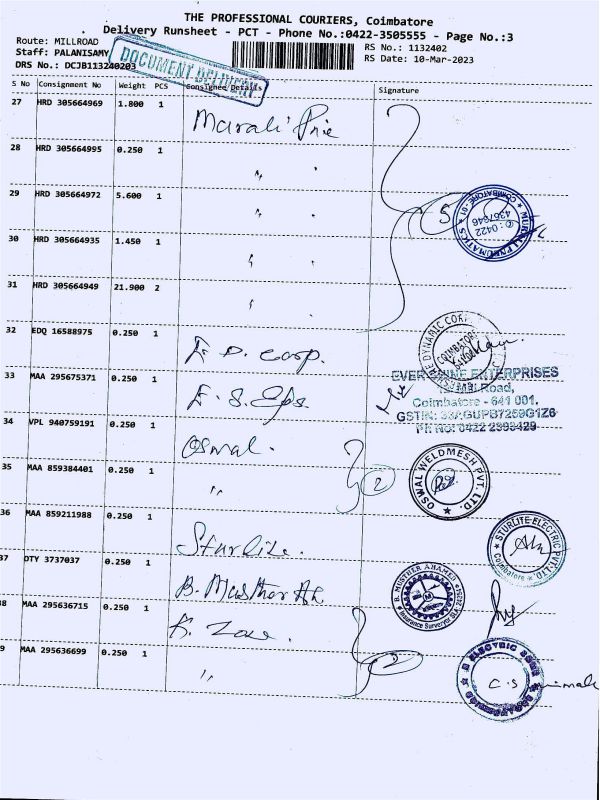 THE PROFESSIONAL COURIERS, Coimbatore
Delivery Runsheet - PCT - Phone No.:0422-3505555 - Page No.:3
Route: MILLROAD
Staff: PALANISAMY
DRS No.: DCJB113240203
RS No.: 1132402
RS Date: 10-Mar-2023
DOCUMENT DELIVERY
S No Consignment No Weight PCS Consignee Details Signature
27 HRD 305664969 1.800 1
28 HRD 305664995 0.250 1 " "
29 HRD 305664972 5.600 1 " "
5
MURALI PNEUMATICS
COIMBATORE - 01
✆: 0422
4367846
30 HRD 305664935 1.450 1 " "
31 HRD 305664949 21.900 2 " "
32 EDQ 16588975 0.250 1 E. D. Corp.
COIMBATORE
33 MAA 295675371 0.250 1
EVERSHINE ENTERPRISES
Mill Road,
Coimbatore - 641 001.
34 VPL 940759191 0.250 1 Oswal.
35 MAA 859384401 0.250 1 "
2
OSWAL WELDMESH PVT. LTD.
36 MAA 859211988 0.250 1 Sturlite.
STURLITE ELECTRIC PVT. LTD.
Coimbatore
37 DTY 3737037 0.250 1
B. MUSTHER AHAMED
Insurance Surveyor
38 MAA 295636715 0.250 1
39 MAA 295636699 0.250 1 "
2
C.S